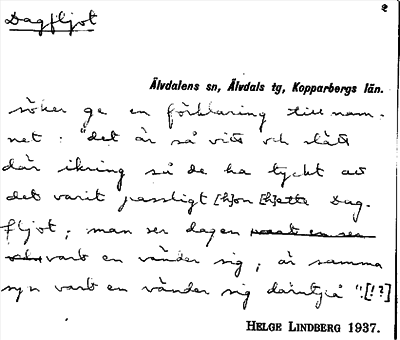 Dagfljot
2
Älvdalens sn, Älvdals tg, Kopparbergs län.
söker ge en förklaring till nam-
net: "det är så vitt och slätt
där ikring så de ha tyckt att
det varit passligt [h]on [h]ette Dag-
fljot; man ser dagen
vart en vänder sig; är samma
syn vart en vänder sig därutpå" [!?]
HELGE LINDBERG 1937.